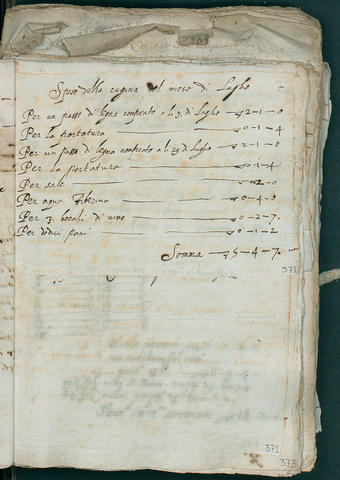 Spese della cugina del mese di Luglio
Per un passo di legna comprato a li 3. di Luglio — 2–1–0
Per la portatura — 0–1–4
Per un passo di legna comprato a li 29 di Luglio — 2–1–0
Per la portatura — 0–1–4
Per sale
Per aqua Teberina — 0–4–0
Per 3. bocali di — 0–2–7.
Per dodici pani — 0–1–2
Somma — 5–4–7.
371
372
373